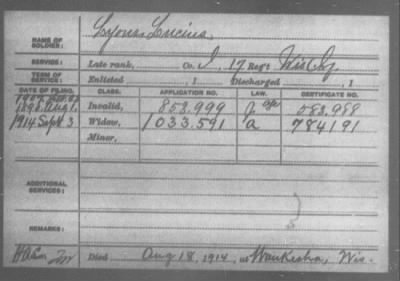 NAME OF SOLDIER: Lyons Lucius
SERVICE: Late rank, Co. I, 17 Reg't Wis Inf
TERM OF SERVICE: Enlisted , 1 Discharged , 1
DATE OF FILING. CLASS. APPLICATION NO. LAW. CERTIFICATE NO.
1898 Aug 1. Invalid, 853.999 583,988
1914 Sept 3 Widow, 1033.591 a 784191
Minor,
ADDITIONAL SERVICES:
REMARKS:
Died Aug 18, 1914, at Waukesha, Wis.